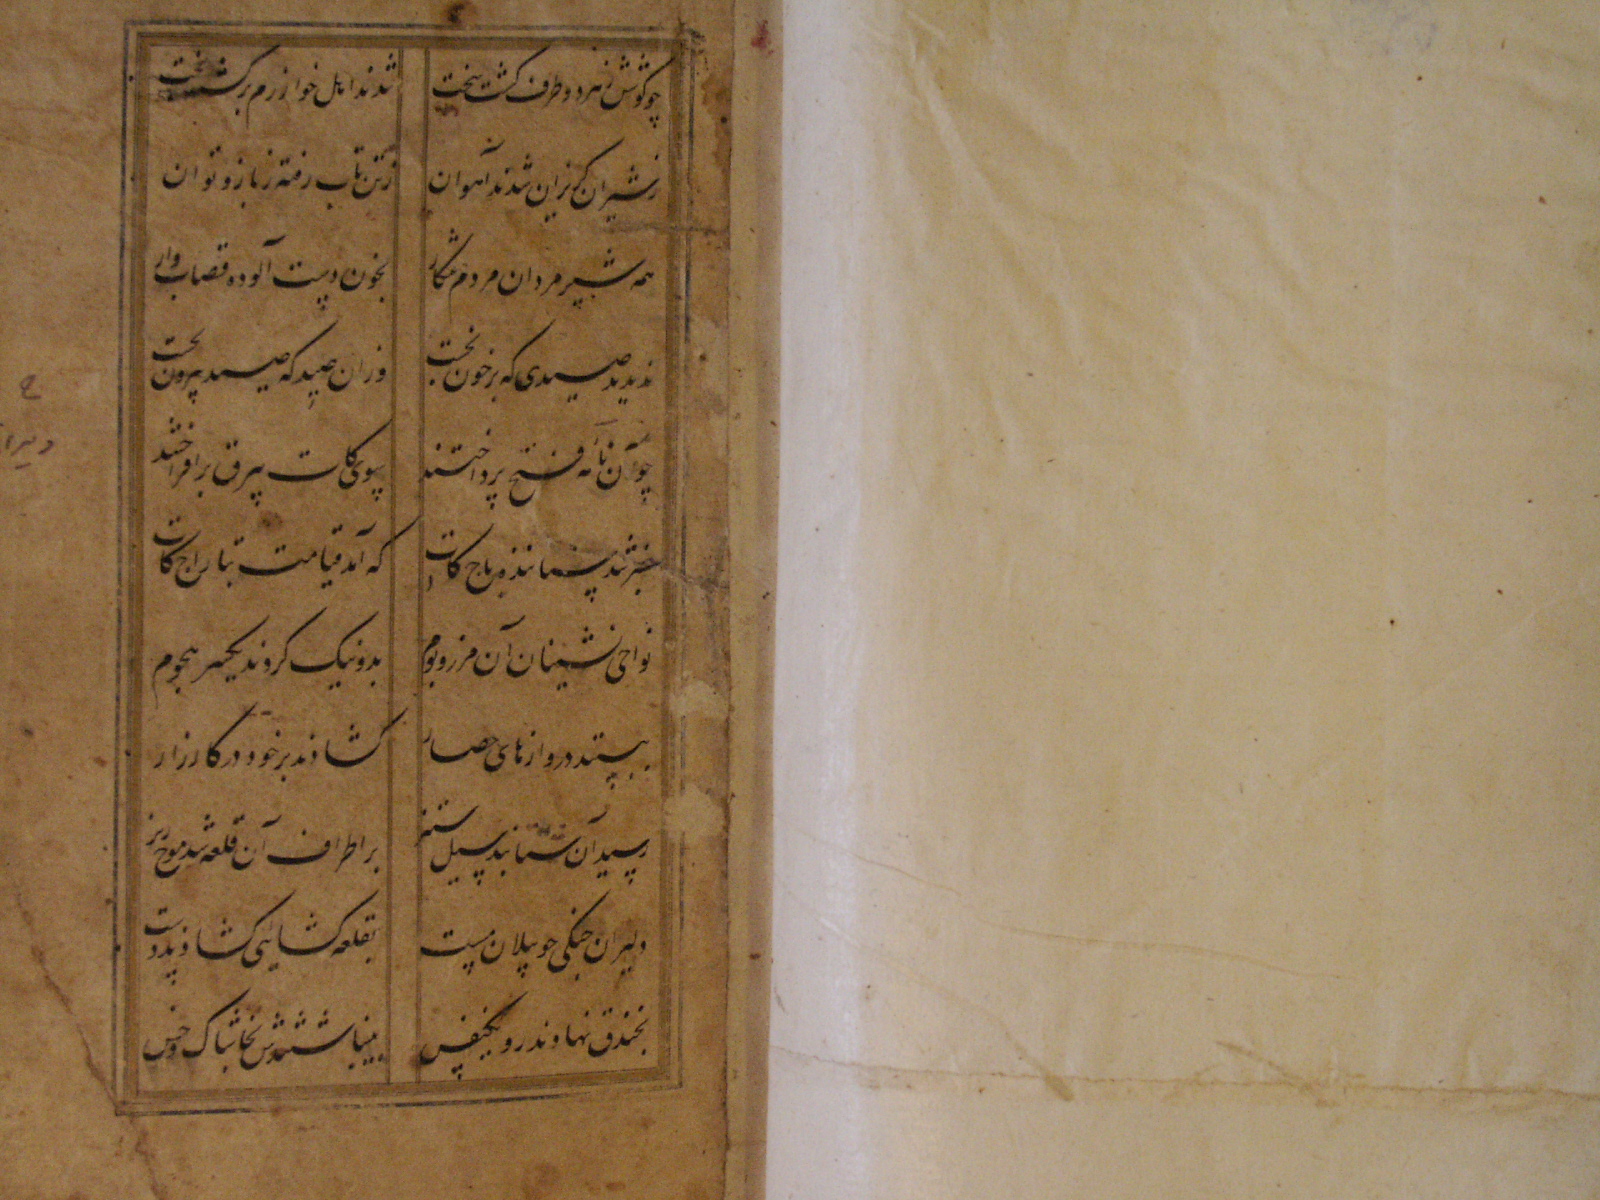 چو کوشش ز هر دو طرف گشت سخت شدند اهل خوارزم برگشته بخت
ز شیران گریزان شدند آهوان ز تن تاب رفته ز بازو توان
همه شیر مردان مردم شکار بخون دست آلوده قصاب وار
ندیدند صیدی که بر خون نخست وزان صید که صید بیرون نجست
چو آن نامه فتح پرداختند بسوی کات بیرق برافراختند
خبر شد به تاج کات که آمد قیامت بتاراج کات
نواحی نشینان آن مرز و بوم بد و نیک کردند یکسر هجوم
ببستند دروازهای حصار گشادند بر خود در کارزار
رسید آن شتابنده سیل ستیز بر اطراف آن قلعه شد موج ریز
دلیران جنگی چو پیلان مست بقلعه کشایی کشادند دست
بخندق نهادند رو یکنفس بینباشتندش بخاشاک و خس